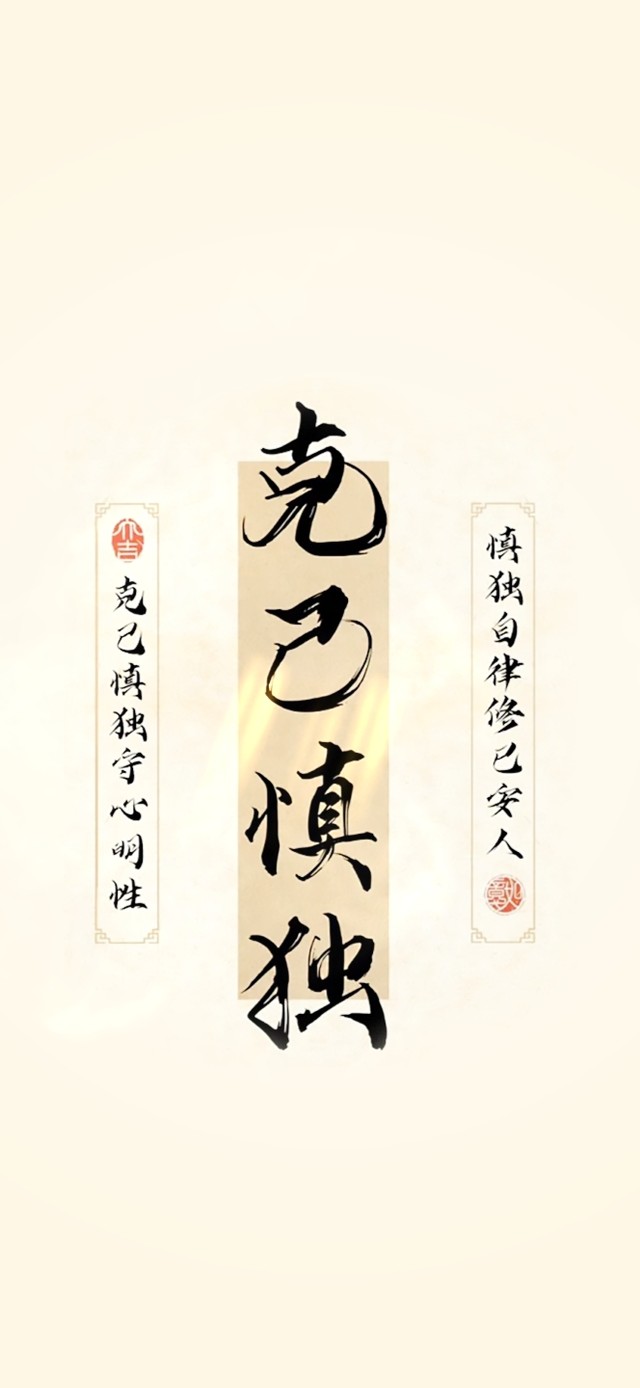 克己慎独
慎独自律修己安人
克己慎独守心明性
大吉